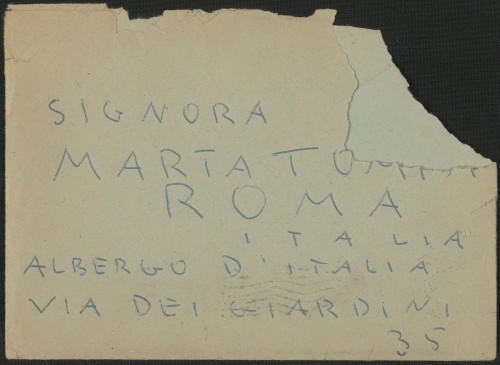 SIGNORA
MARTA
ROMA
ITALIA
ALBERGO D'ITALIA
VIA DEI GIARDINI
35